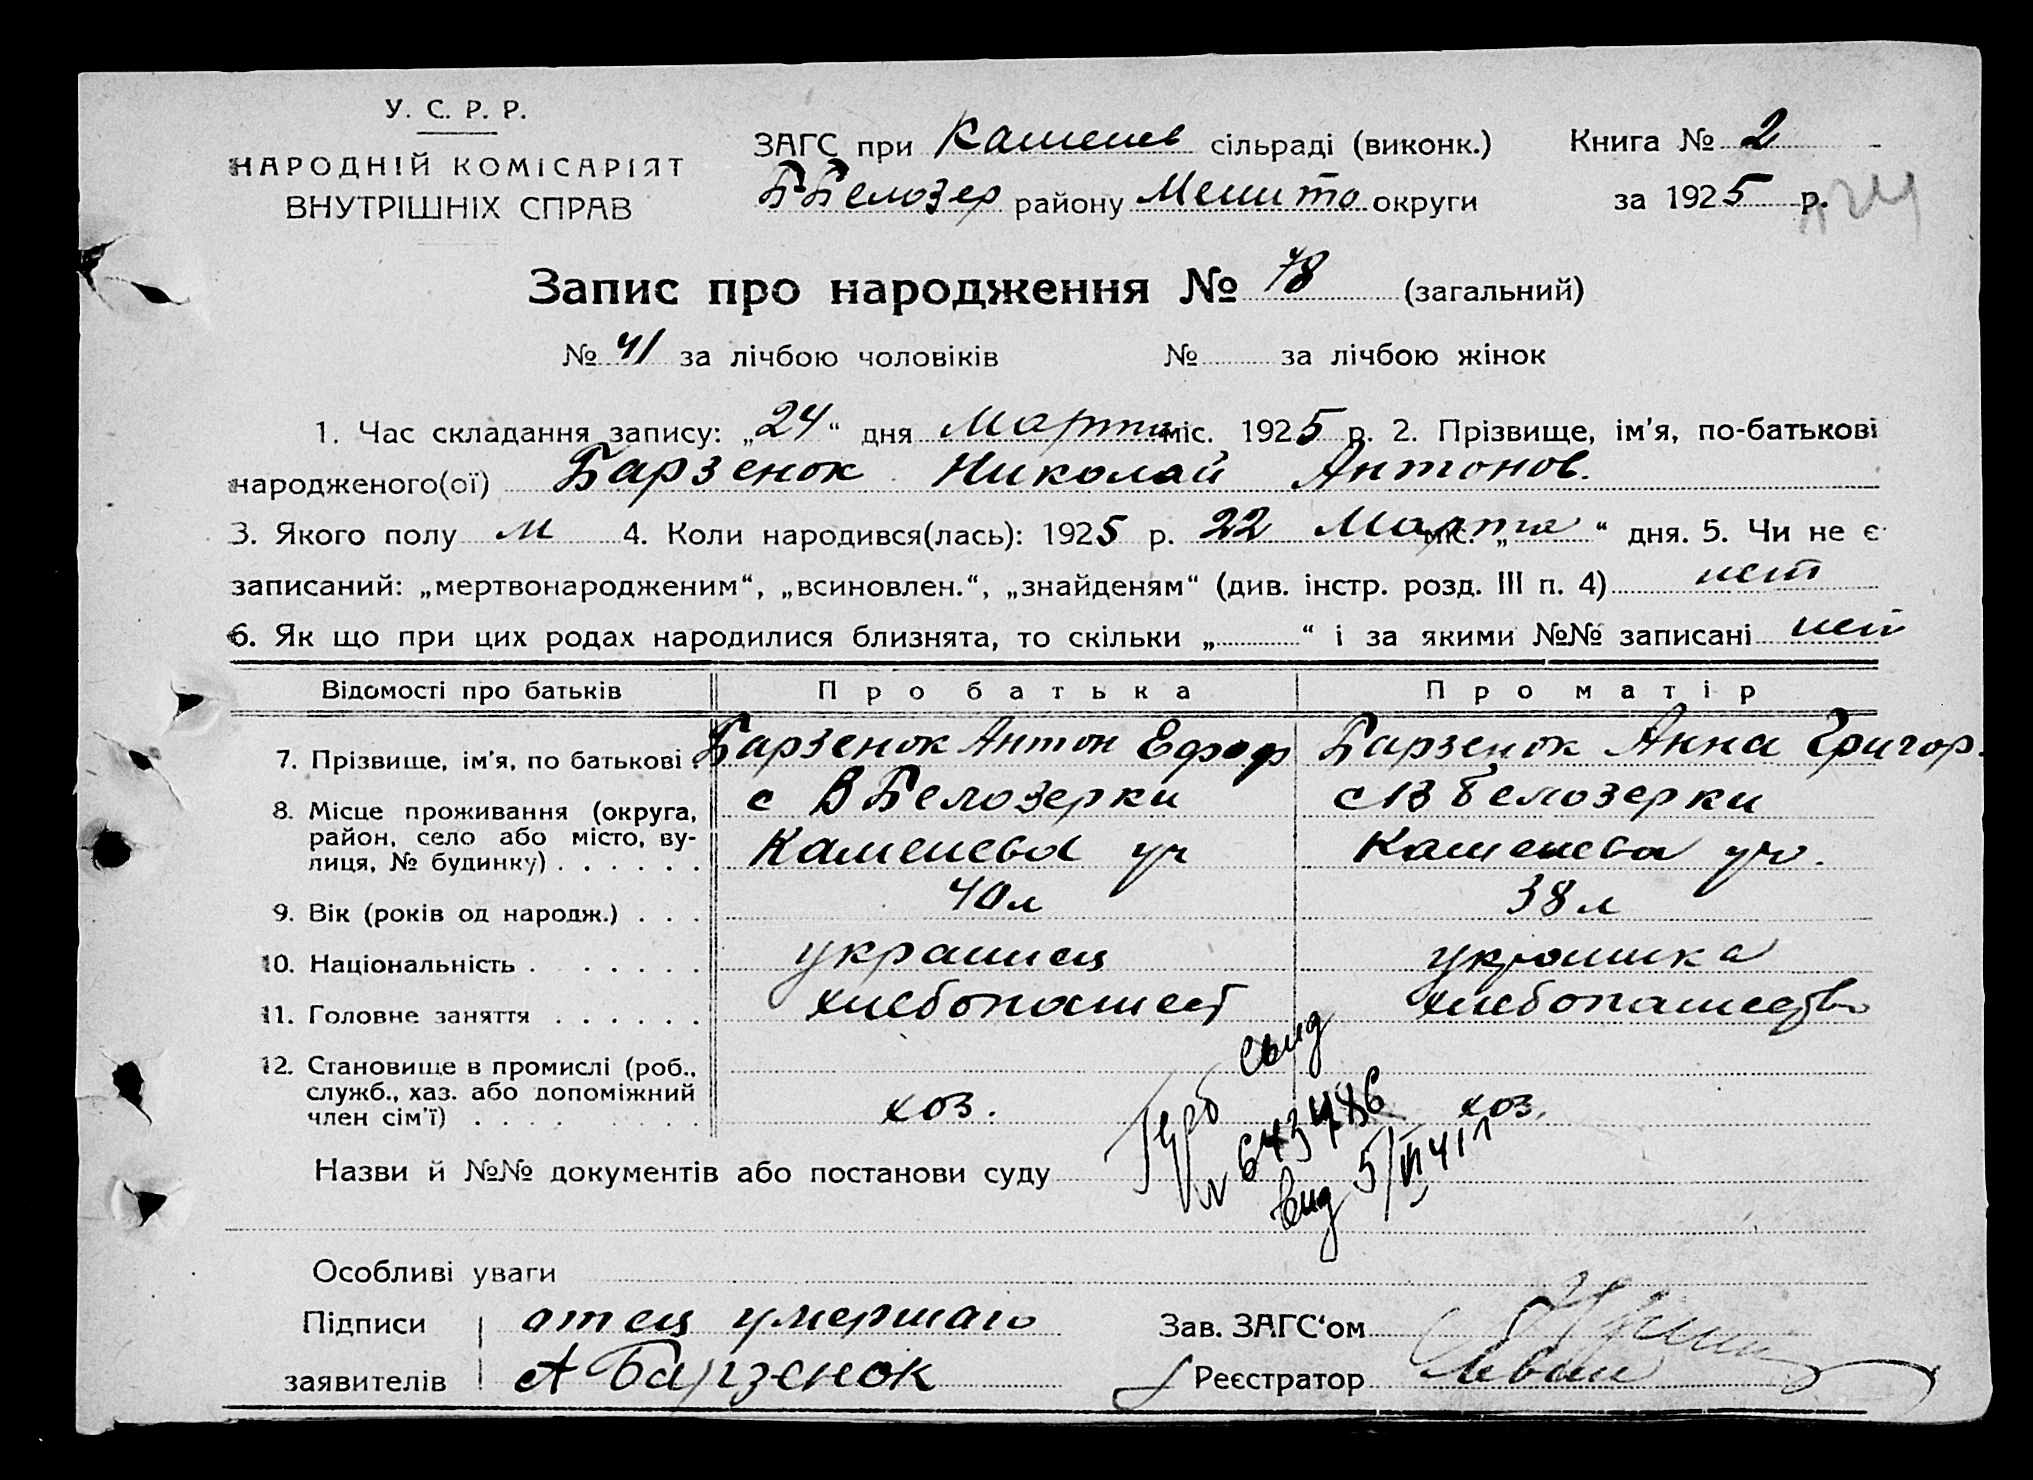 У. С. Р. Р.
НАРОДНІЙ КОМІСАРІЯТ
ВНУТРІШНІХ СПРАВ
ЗАГС при Каменев сільраді (виконк.) Книга № 2
ББелозер району Мелито округи за 1925 р.
Запис про народження № 78 (загальний)
№ 41 за лічбою чоловіків № за лічбою жінок
1. Час складання запису: „24“ дня Марта міс. 1925 р. 2. Прізвище, ім'я, по-батькові
народженого(ої) Барзенок Николай Антонов.
3. Якого полу м 4. Коли народився(лась): 1925 р. 22 Марта міс. „ “ дня. 5. Чи не є
записаний: „мертвонародженим“, „всиновлен.“, „знайденям“ (див. інстр. розд. III п. 4) нет
6. Як що при цих родах народилися близнята, то скільки „ “ і за якими №№ записані нет
Відомості про батьків Про батька Про матір
7. Прізвище, ім'я, по батькові . Барзенок Антон Ефроф Барзенок Анна Григор.
8. Місце проживання (округа, район, село або місто, вулиця, № будинку) . . . . . . с В Белозерки с В Белозерки
Каменева уч Каменева уч.
9. Вік (років од народж.) . . . 40 л 38 л
10. Національність . . . . . . . украинец украинка
11. Головне заняття . . . . . . хлебопашест хлебопашество
12. Становище в промислі (роб., служб., хаз. або допоміжний член сім'ї) . . . . . . . . хоз. хоз.
свид
№ 643486
вид 5/VI 41 г
Назви й №№ документів або постанови суду
Особливі уваги
Підписи отец умершаго Зав. ЗАГС'ом
заявителів А Барзенок Реєстратор